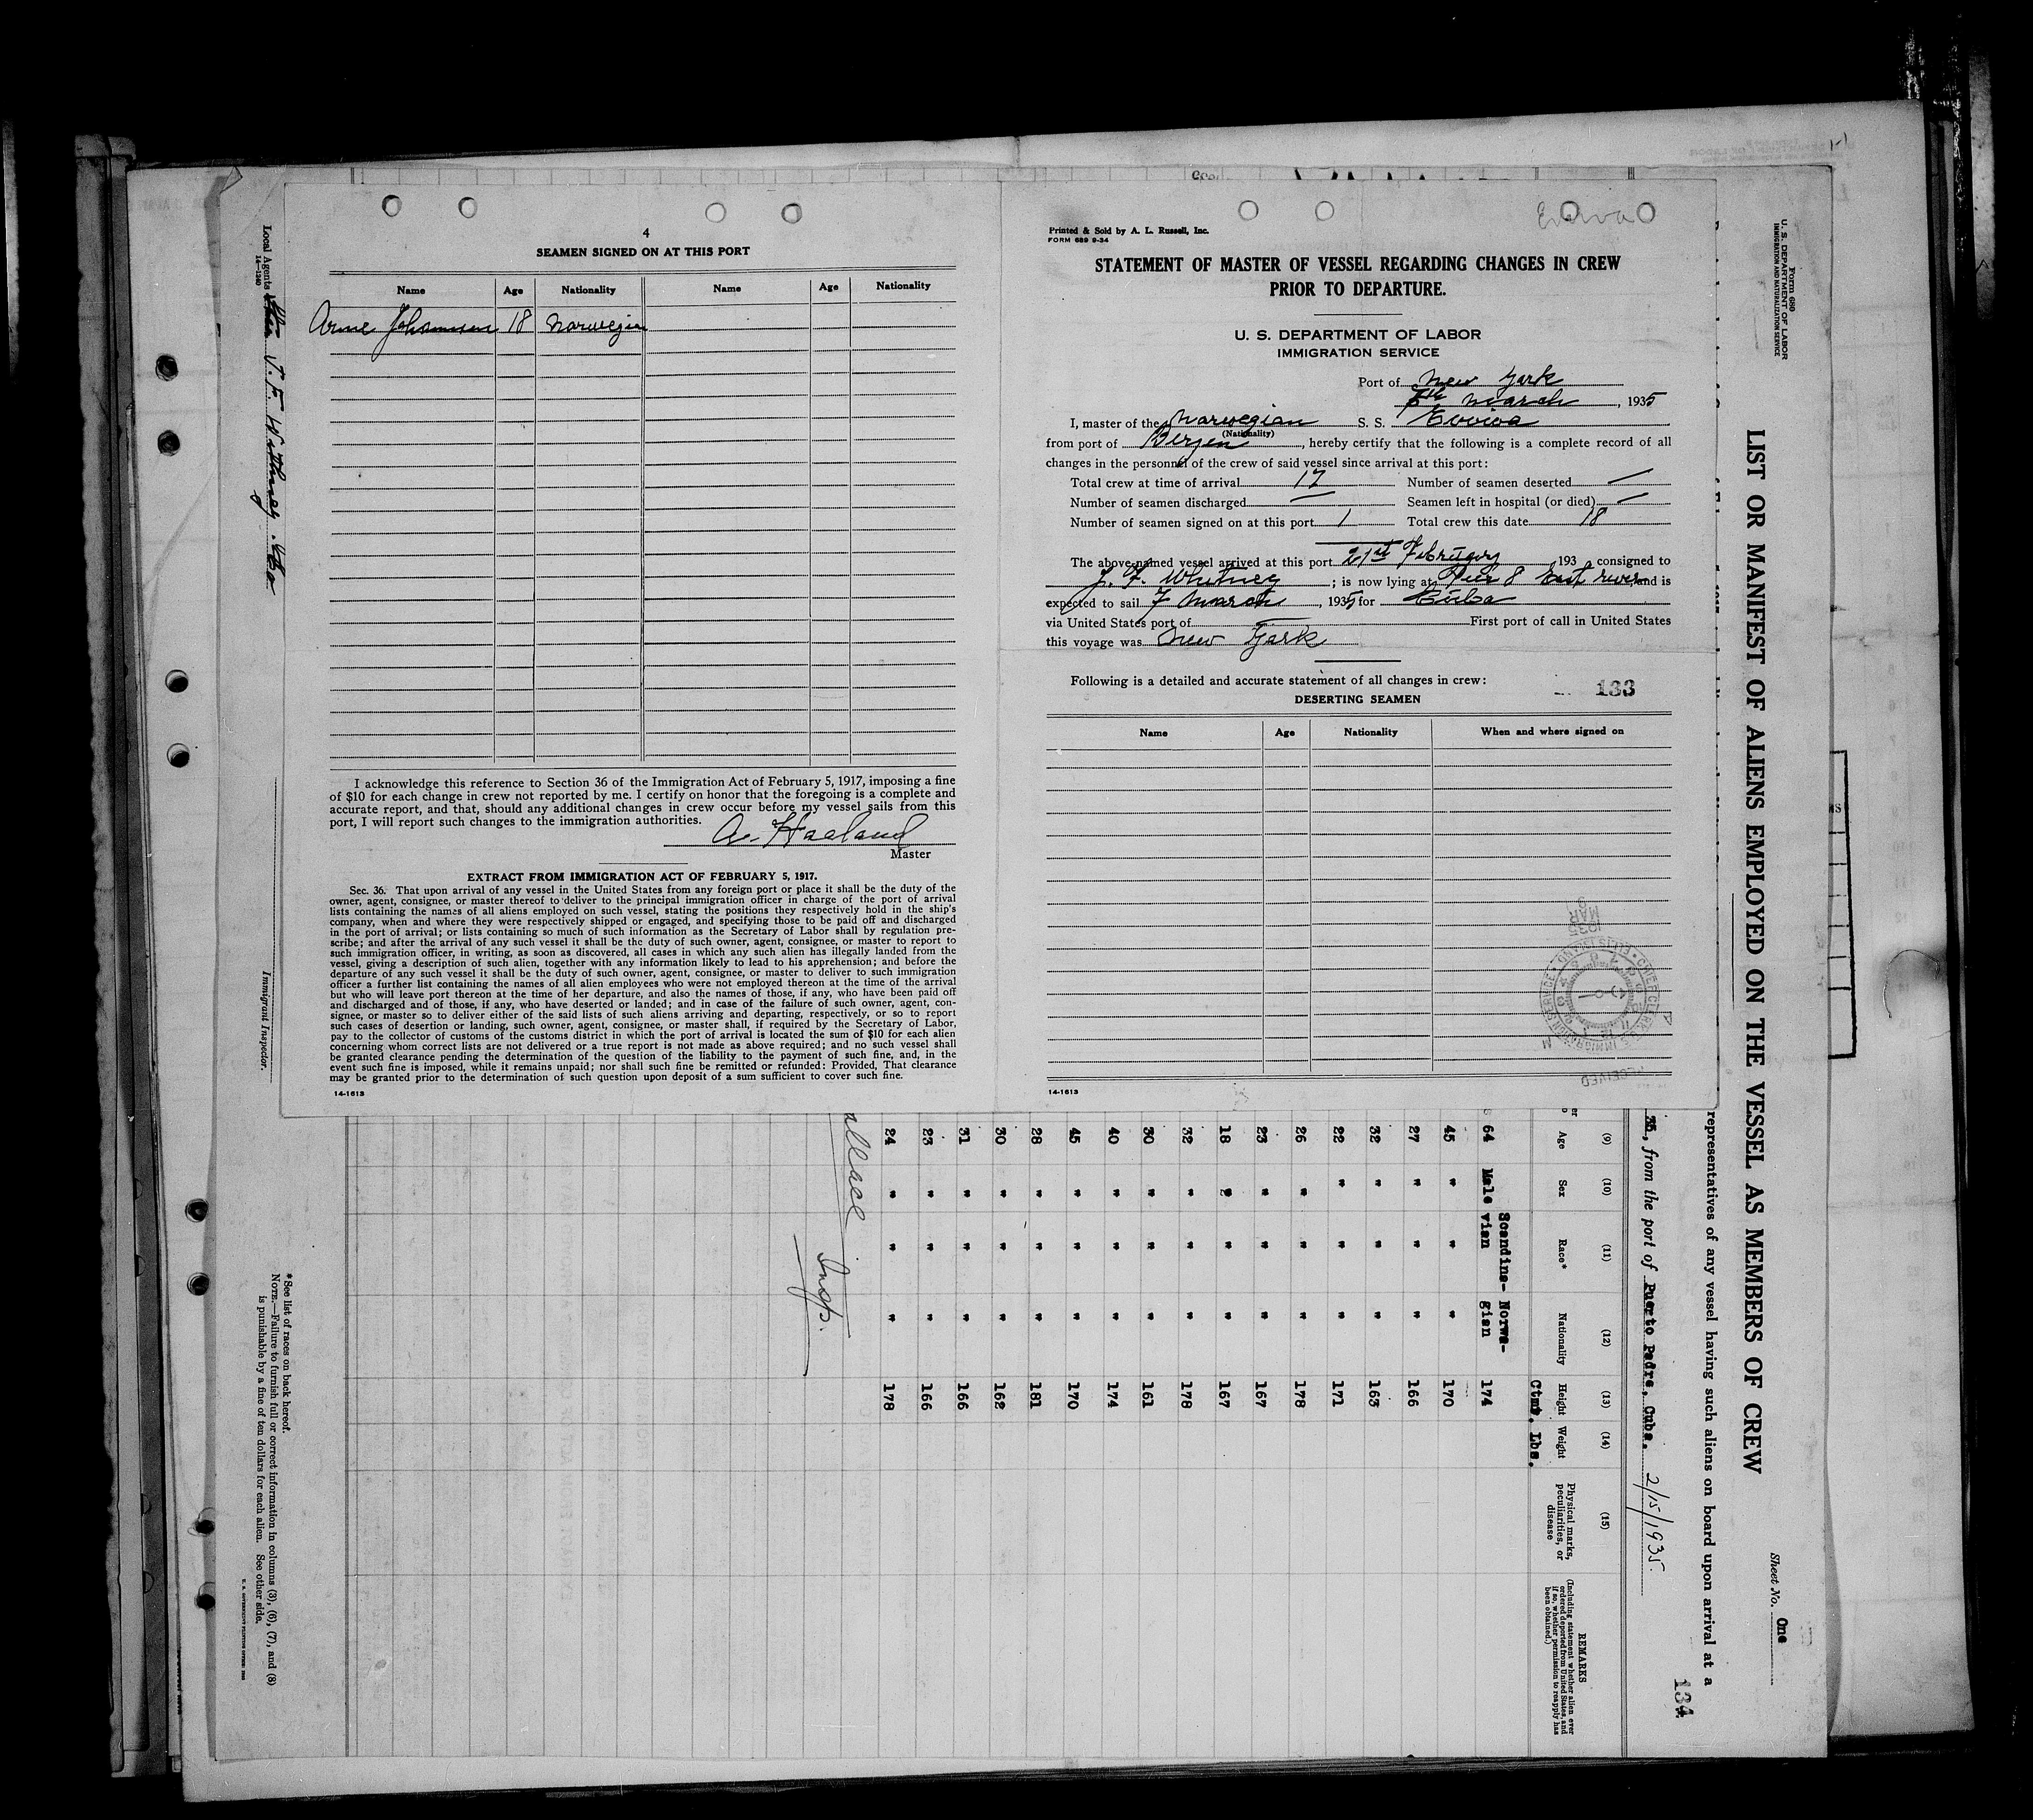 4
SEAMEN SIGNED ON AT THIS PORT
Name Age Nationality Name Age Nationality
Arne Johannsen 18 Norwegian
I acknowledge this reference to Section 36 of the Immigration Act of February 5, 1917, imposing a fine
of $10 for each change in crew not reported by me. I certify on honor that the foregoing is a complete and
accurate report, and that, should any additional changes in crew occur before my vessel sails from this
port, I will report such changes to the immigration authorities.
A. Haaland
Master
EXTRACT FROM IMMIGRATION ACT OF FEBRUARY 5, 1917.
Sec. 36. That upon arrival of any vessel in the United States from any foreign port or place it shall be the duty of the
owner, agent, consignee, or master thereof to deliver to the principal immigration officer in charge of the port of arrival
lists containing the names of all aliens employed on such vessel, stating the positions they respectively hold in the ship's
company, when and where they were respectively shipped or engaged, and specifying those to be paid off and discharged
in the port of arrival; or lists containing so much of such information as the Secretary of Labor shall by regulation pre-
scribe; and after the arrival of any such vessel it shall be the duty of such owner, agent, consignee, or master to report to
such immigration officer, in writing, as soon as discovered, all cases in which any such alien has illegally landed from the
vessel, giving a description of such alien, together with any information likely to lead to his apprehension; and before the
departure of any such vessel it shall be the duty of such owner, agent, consignee, or master to deliver to such immigration
officer a further list containing the names of all alien employees who were not employed thereon at the time of the arrival
but who will leave port thereon at the time of her departure, and also the names of those, if any, who have been paid off
and discharged and of those, if any, who have deserted or landed; and in case of the failure of such owner, agent, con-
signee, or master so to deliver either of the said lists of such aliens arriving and departing, respectively, or so to report
such cases of desertion or landing, such owner, agent, consignee, or master shall, if required by the Secretary of Labor,
pay to the collector of customs of the customs district in which the port of arrival is located the sum of $10 for each alien
concerning whom correct lists are not delivered or a true report is not made as above required; and no such vessel shall
be granted clearance pending the determination of the question of the liability to the payment of such fine, and, in the
event such fine is imposed, while it remains unpaid; nor shall such fine be remitted or refunded: Provided, That clearance
may be granted prior to the determination of such question upon deposit of a sum sufficient to cover such fine.
14-1613
Printed & Sold by A. L. Russell, Inc.
FORM 689 9-34
STATEMENT OF MASTER OF VESSEL REGARDING CHANGES IN CREW
PRIOR TO DEPARTURE.
U. S. DEPARTMENT OF LABOR
IMMIGRATION SERVICE
Port of New York
6th March, 1935
I, master of the Norwegian S. S. Evviva
(Nationality)
from port of Bergen, hereby certify that the following is a complete record of all
changes in the personnel of the crew of said vessel since arrival at this port:
Total crew at time of arrival 17 Number of seamen deserted —
Number of seamen discharged — Seamen left in hospital (or died) —
Number of seamen signed on at this port 1 Total crew this date 18
The above-named vessel arrived at this port 21st February, 193 , consigned to
J. F. Whitney; is now lying at Pier 8 East river, and is
expected to sail 7 March, 1935 for Cuba
via United States port of — First port of call in United States
this voyage was New York
Following is a detailed and accurate statement of all changes in crew:
133
DESERTING SEAMEN
Name Age Nationality When and where signed on
RECEIVED
CHIEF CLERK U.S. IMMIGRATION SERVICE ELLIS ISLAND
1935 MAR 6
14-1613
Form 680
U. S. DEPARTMENT OF LABOR
IMMIGRATION AND NATURALIZATION SERVICE
LIST OR MANIFEST OF ALIENS EMPLOYED ON THE VESSEL AS MEMBERS OF CREW
Sheet No. One
representatives of any vessel having such aliens on board upon arrival at a
134
35, from the port of Puerto Padre, Cuba. 2/15/1935.
(9) (10) (11) (12) (13) (14) (15)
Age Sex Race* Nationality Height Weight Physical marks, peculiarities, or disease
REMARKS
(Including statement whether alien ever ordered deported from United States, and if so, whether permission to reapply has been obtained.)
Ctms. Lbs.
64 Male Scandina-vian Norwe-gian 174
45 " " " 170
27 " " " 166
32 " " " 163
22 " " " 171
26 " " " 178
23 " " " 167
18 " " " 167
32 " " " 178
30 " " " 161
40 " " " 174
45 " " " 170
28 " " " 181
30 " " " 162
31 " " " 166
23 " " " 166
24 " " " 178
Insp.
Immigrant Inspector.
Local Agents J. F. Whitney & Co
14—1240
*See list of races on back hereof.
NOTE.—Failure to furnish full or correct information in columns (3), (6), (7), and (8)
is punishable by a fine of ten dollars for each alien. See other side.